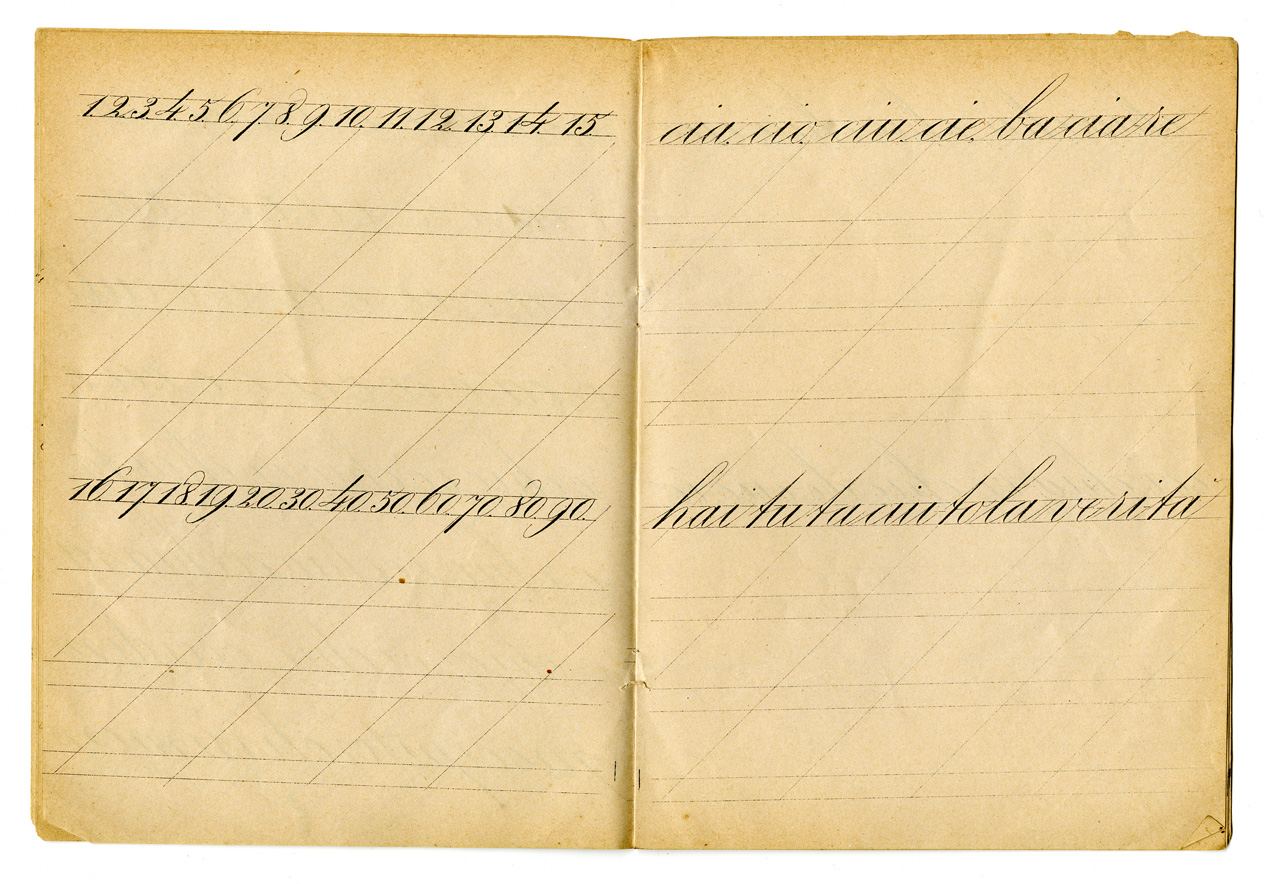 1.2.3.4.5.6.7.8.9.10.11.12.13.14.15.
16.17.18.19.20.30.40.50.60.70.80.90.
cia. cio. ciu. cie. baciare
hai tu taciuto la verità